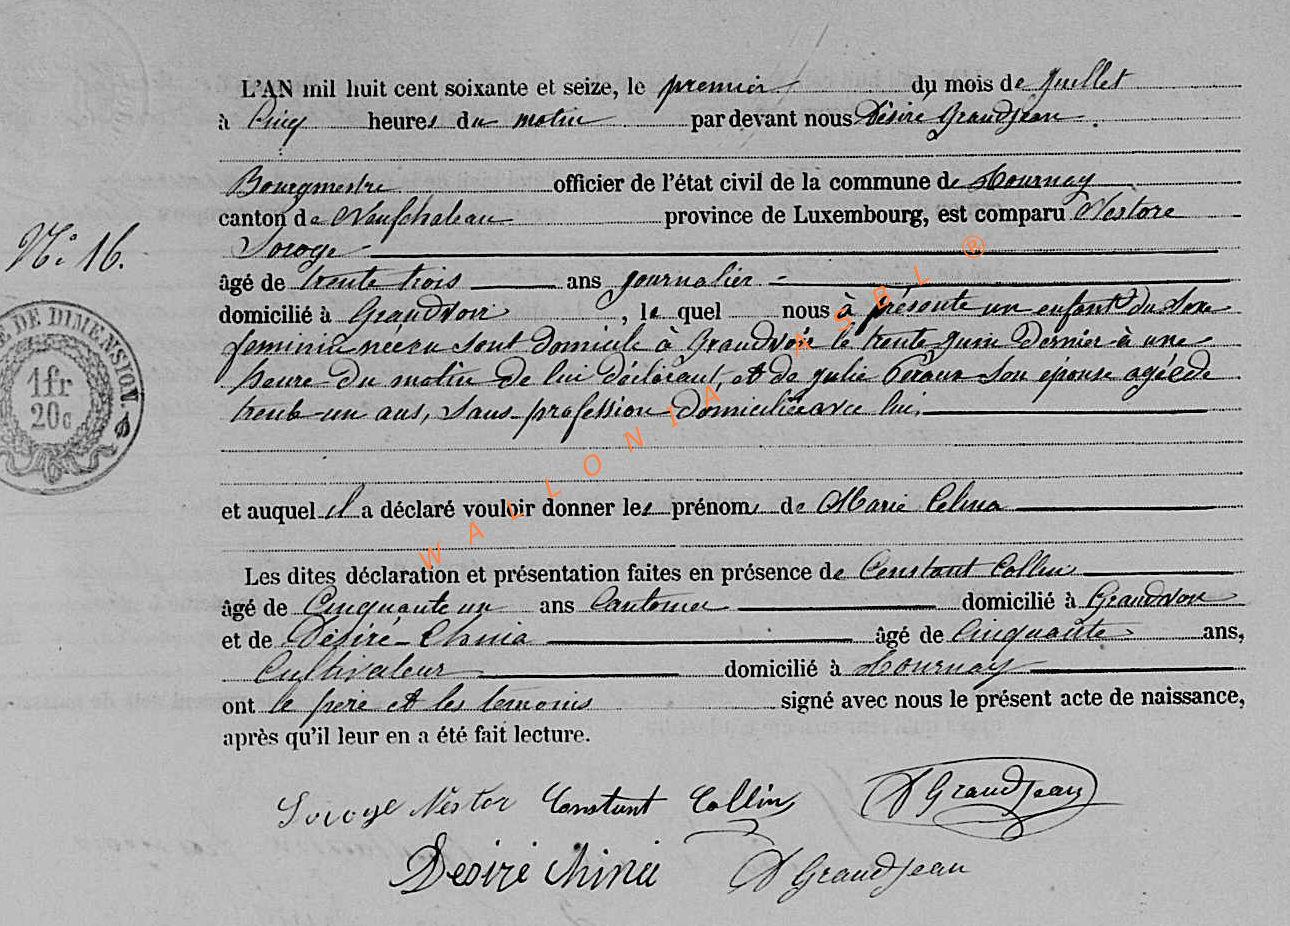 L'AN mil huit cent soixante et seize, le premier du mois de juillet
à Cinq heures du matin par devant nous Désiré Grandjean
Bourgmestre officier de l'état civil de la commune de Hournay
canton de Neufchateau province de Luxembourg, est comparu Nestore
N° 16.
Soroge
âgé de trente trois ans journalier
domicilié à Grandvoir, le quel nous à présente un enfant du sexe
feminin née en sont domicile à Grandvoir le trente juin dernier à une
heure du matin de lui déclarant, et de julie son épouse agée de
trente-un ans, sans profession domiciliée avec lui.
DE DIMENSION.
1fr
20c
et auquel il a déclaré vouloir donner les prénoms de Marie Celina
Les dites déclaration et présentation faites en présence de Constant Collin
âgé de Cinquante un ans Cantonier domicilié à Grandvoir
et de Désiré âgé de Cinquante ans,
Cultivateur domicilié à Hournay
ont le père et les temoins signé avec nous le présent acte de naissance,
après qu'il leur en a été fait lecture.
Soroge Nestor Constant Collin D Grandjean
Desiré D Grandjean
WALLONIA ASBL ®